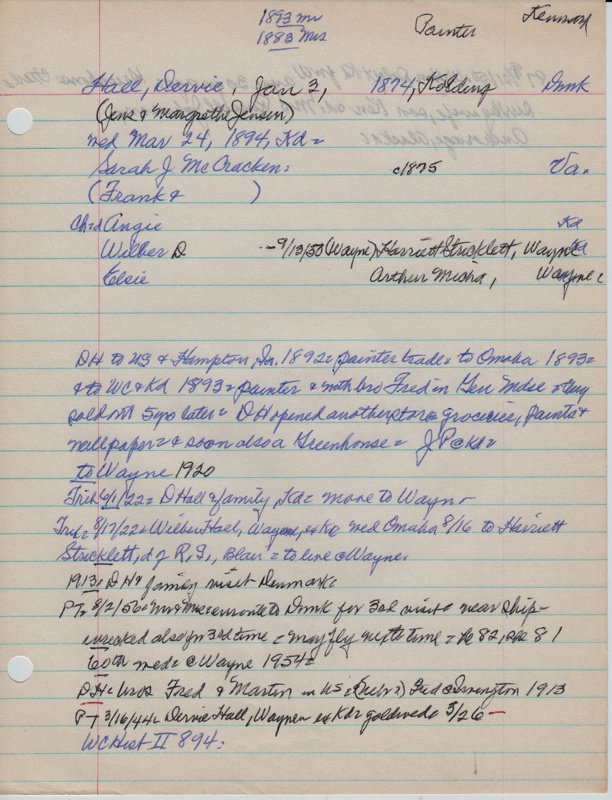 1893 mr
1883 Mrs
Painter
Kennard
Hall, Dervie, Jan 3, 1874, Kolding Dmk
(Jens & Margrethe Jensen)
wed Mar 24, 1894, Kd=
Sarah J. McCracken: c1875 Va.
(Frank & )
Chd Angie Kd
Wilber D --9/13/50 (Wayne) Harriett Stricklett, Wayne
Elsie Arthur Micha, Wayne
DH to US & Hampton, Ia. 1892= painter trade= to Omaha 1893=
& to WC & Kd 1893= painter & with bro Fred in Gen Mdse = they
sold out 5 yo later = DH opened another store= groceries, paints &
wallpaper= & soon also a Greenhouse = J P @ Kd=
to Wayne 1920
Trib 6/1/22= D Hall & family, Kd= move to Wayne
Trib= 8/17/22= Wilber Hall, Wayne, ex Kd wed Omaha 8/16 to Harriett
Stricklett, d of R.S., Blair = to live @ Wayne,
1913= DH & family visit Denmark
PT= 8/2/56= Mr & Mrs enroute to Dmk for 3rd visit= near ship-
wrecked also for 3rd time = may fly next time = he 82, she 81
60th wed= @ Wayne 1954=
DH= bros Fred & Martin in US= Fred @ Irvington 1913
PT 3/16/44= Dervie Hall, Wayne= ex Kd= goldweds 3/26 —
WC Hist II 894: